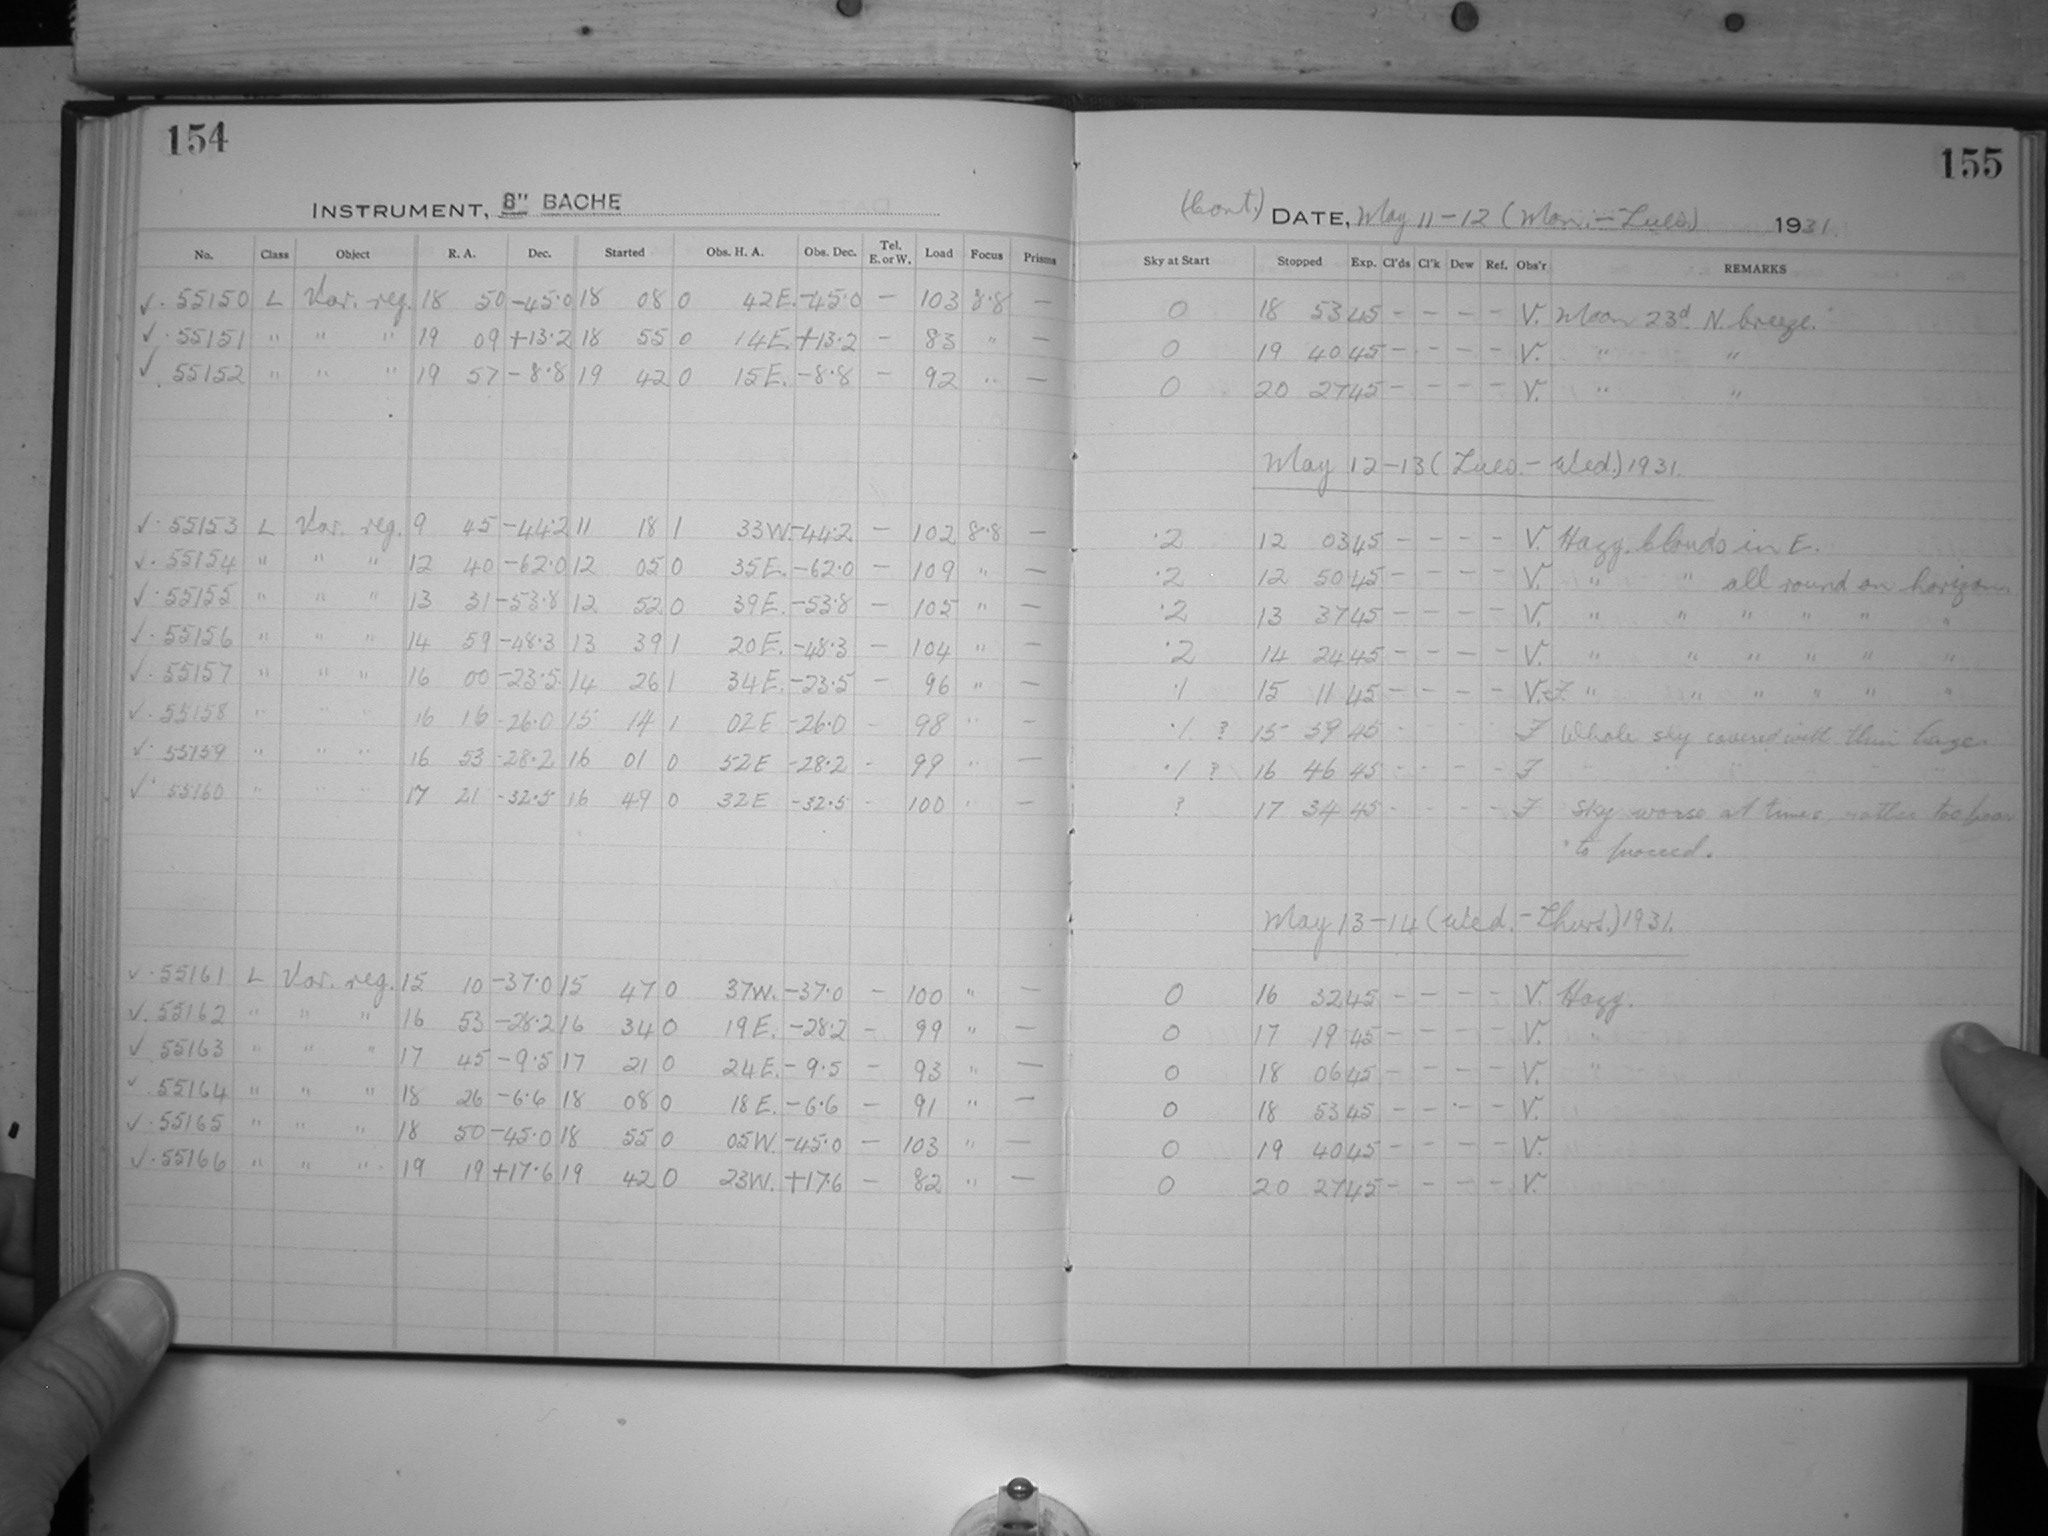 154
INSTRUMENT, 8" BACHE
No. Class Object R. A. Dec. Started Obs. H. A. Obs. Dec. Tel. E. or W. Load Focus Prisms
✓. 55150 L Var. reg. 18 50 -45.0 18 08 0 42E. -45.0 — 103 8.8 —
✓. 55151 " " " 19 09 +13.2 18 55 0 14E. +13.2 — 83 " —
✓. 55152 " " " 19 57 -8.8 19 42 0 15E. -8.8 — 92 " —
✓. 55153 L Var. reg. 9 45 -44.2 11 18 1 33W. -44.2 — 102 8.8 —
✓. 55154 " " " 12 40 -62.0 12 05 0 35E. -62.0 — 109 " —
✓. 55155 " " " 13 31 -53.8 12 52 0 39E. -53.8 — 105 " —
✓. 55156 " " " 14 59 -48.3 13 39 1 20E. -48.3 — 104 " —
✓. 55157 " " " 16 00 -23.5 14 26 1 34E. -23.5 — 96 " —
✓. 55158 " " " 16 16 -26.0 15 14 1 02E -26.0 - 98 " —
✓. 55159 " " " 16 53 -28.2 16 01 0 52E -28.2 - 99 " —
✓. 55160 " " " 17 21 -32.5 16 49 0 32E -32.5 - 100 " —
✓. 55161 L Var. reg. 15 10 -37.0 15 47 0 37W. -37.0 — 100 " —
✓. 55162 " " " 16 53 -28.2 16 34 0 19E. -28.2 — 99 " —
✓. 55163 " " " 17 45 -9.5 17 21 0 24E. -9.5 — 93 " —
✓. 55164 " " " 18 26 -6.6 18 08 0 18E. -6.6 — 91 " —
✓. 55165 " " " 18 50 -45.0 18 55 0 05W. -45.0 — 103 " —
✓. 55166 " " " 19 19 +17.6 19 42 0 23W. +17.6 — 82 " —
155
(Cont.) DATE, May 11-12 (Mon.-Tues.) 1931.
Sky at Start Stopped Exp. Cl'ds Cl'k Dew Ref. Obs'r REMARKS
0 18 53 45 - - - - V. Moon 23d. N. breeze.
0 19 40 45 - - - - V. " "
0 20 27 45 - - - - V. " "
May 12-13 (Tues.-Wed.) 1931.
.2 12 03 45 - - - - V. Hazy. Clouds in E.
.2 12 50 45 - - - - V. " " all round on horizon
.2 13 37 45 - - - - V. " " " " " "
.2 14 24 45 - - - - V. " " " " " "
.1 15 11 45 - - - - V.-F. " " " " " "
.1 ? 15 59 45 - - - - F Whole sky covered with thin haze
.1 ? 16 46 45 - - - - F
? 17 34 45 - - - - F Sky worse at times, rather too poor
to proceed.
May 13-14 (Wed.-Thurs.) 1931.
0 16 32 45 - - - - V. Hazy.
0 17 19 45 - - - - V. "
0 18 06 45 - - - - V. "
0 18 53 45 - - - - V.
0 19 40 45 - - - - V.
0 20 27 45 - - - - V.